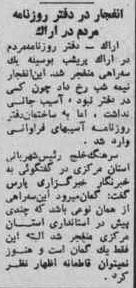 انفجار در دفتر روزنامه
مردم در اراک
اراک – دفتر روزنامه مردم
در اراک پریشب بوسیله یک
سه‌راهی منفجر شد. این‌انفجار
نیمه شب رخ داد چون کسی
در دفتر نبود ، آسیب جانی
نداشت ، اما به ساختمان‌دفتر
روزنامه آسیبهای فراوانی
وارد شد .
سرهنگ‌خلج رئیس‌شهربانی
استان مرکزی در گفتگوئی به
خبرنگار خبرگزاری پارس
گفت: گمان‌میرود این‌سه‌راهی
از همان نوعی باشد که چندی
پیش در استانداری استان
مرکزی منفجر شد البته این
فقط یک گمان است و هنوز
نمیتوان قاطعانه اظهار نظر
کرد .